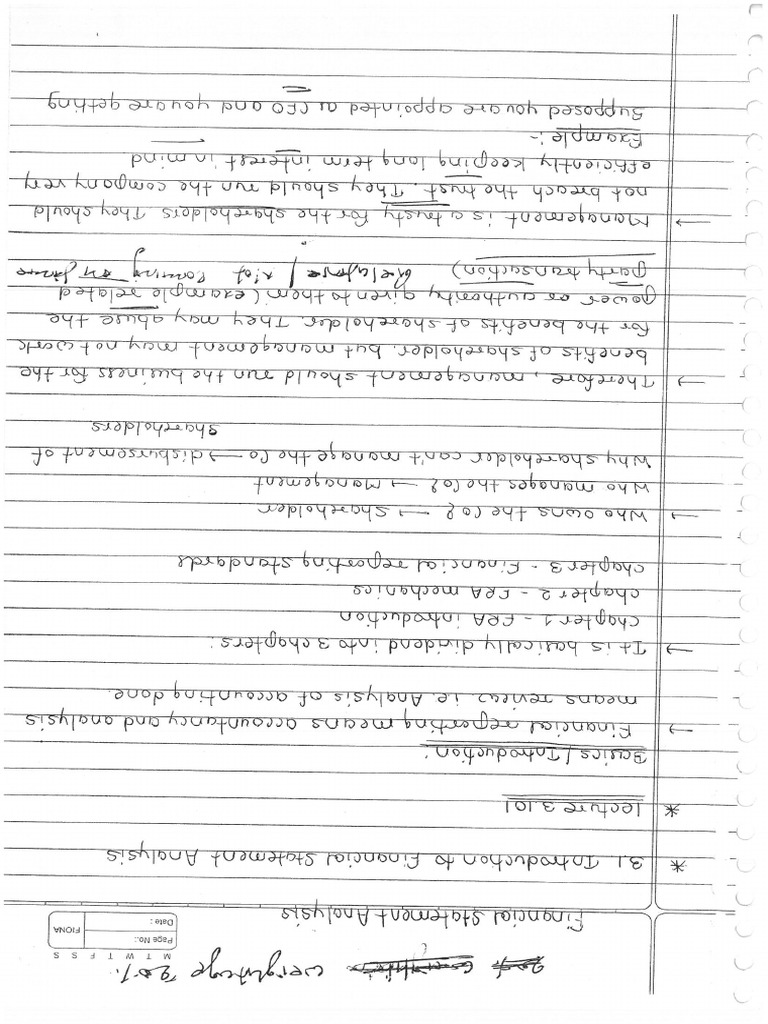 weightage 20%.
M T W T F S S
Page No.:
Date :
FIONA
Financial Statement Analysis
* 3.1 Introduction to Financial Statement Analysis
* lecture 3.101
Basics / Introduction :
→ Financial reporting means accountancy and analysis
means review i.e. Analysis of accounting done.
→ It is basically dividend into 3 chapters:
chapter 1 - FRA introduction
chapter 2 - FRA mechanics
chapter 3 - Financial reporting standards
→ Who owns the Co? → Shareholder
Who manages the Co? → Management
Why shareholder can't manage the Co → disbursement of
Shareholders
→ Therefore, management should run the business for the
benefits of shareholder. but management may not work
for the benefits of shareholder. They may abuse the
power or authority given to them (example related
party transaction)
→ Management is a trusty for the shareholders They should
not breach the trust. They should run the company very
efficiently keeping long term interest in mind
Example :-
Supposed you are appointed as CFO and you are getting